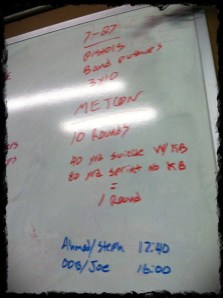 7-27
Pistols
Band
3x10
METCON
10 Rounds
40 yrd suicide w/ KB
80 yrd sprint no KB
=
1 Round
Ahmad/Steph 12:40
DOB/Joe 16:00